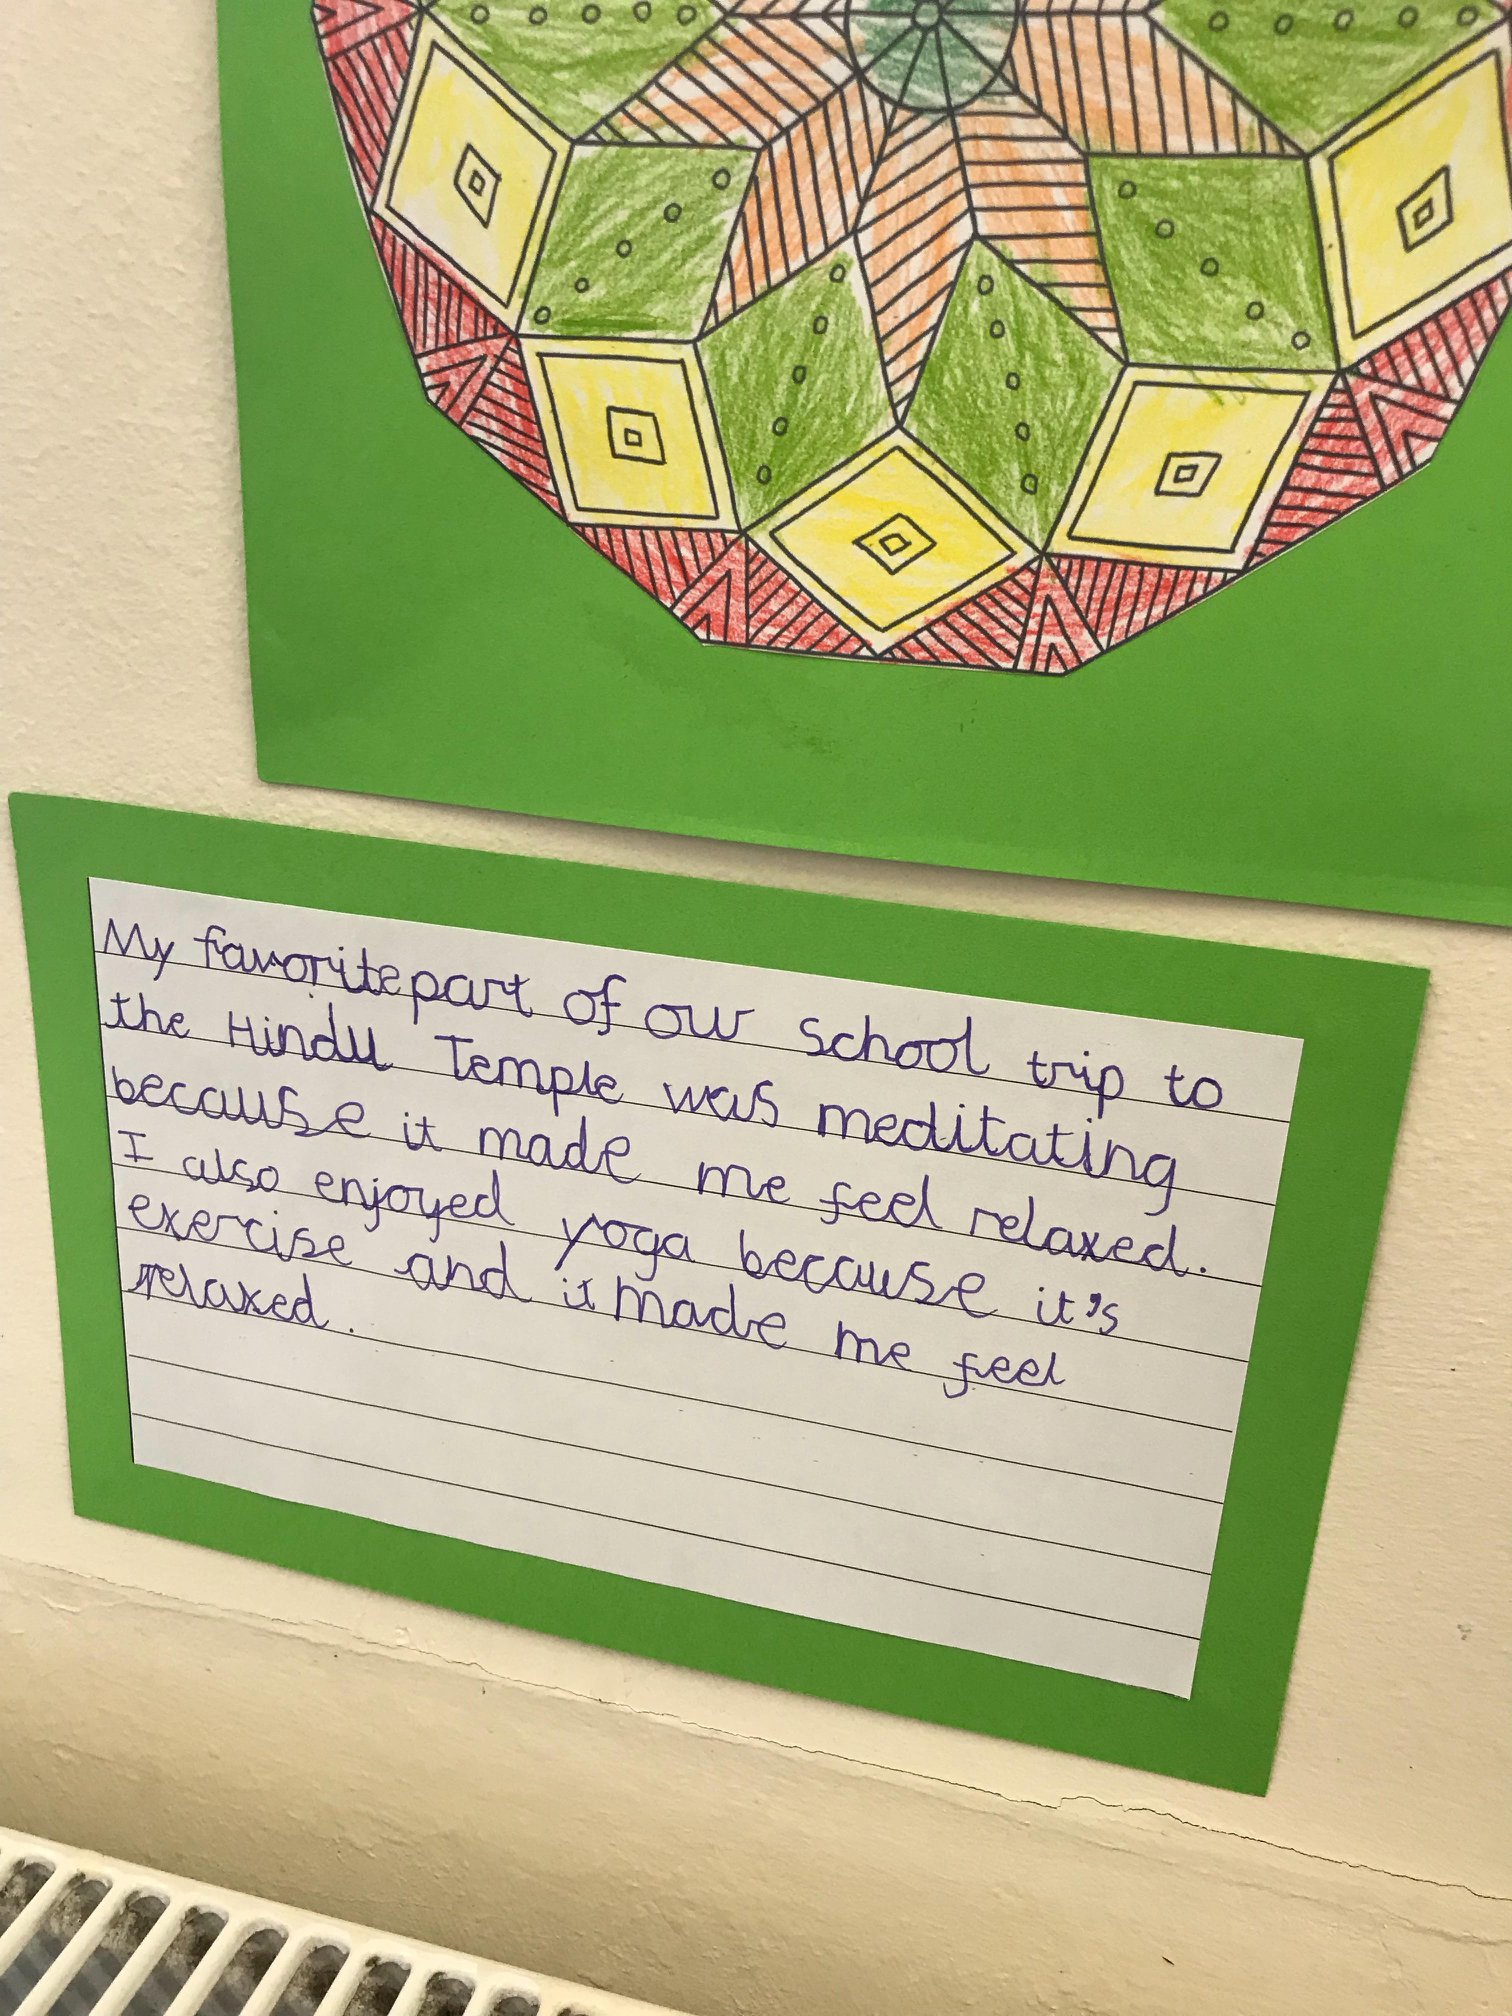 My favorite part of our school trip to
the Hindu Temple was meditating
because it made me feel relaxed.
I also enjoyed yoga because it's
exercise and it made me feel
relaxed.